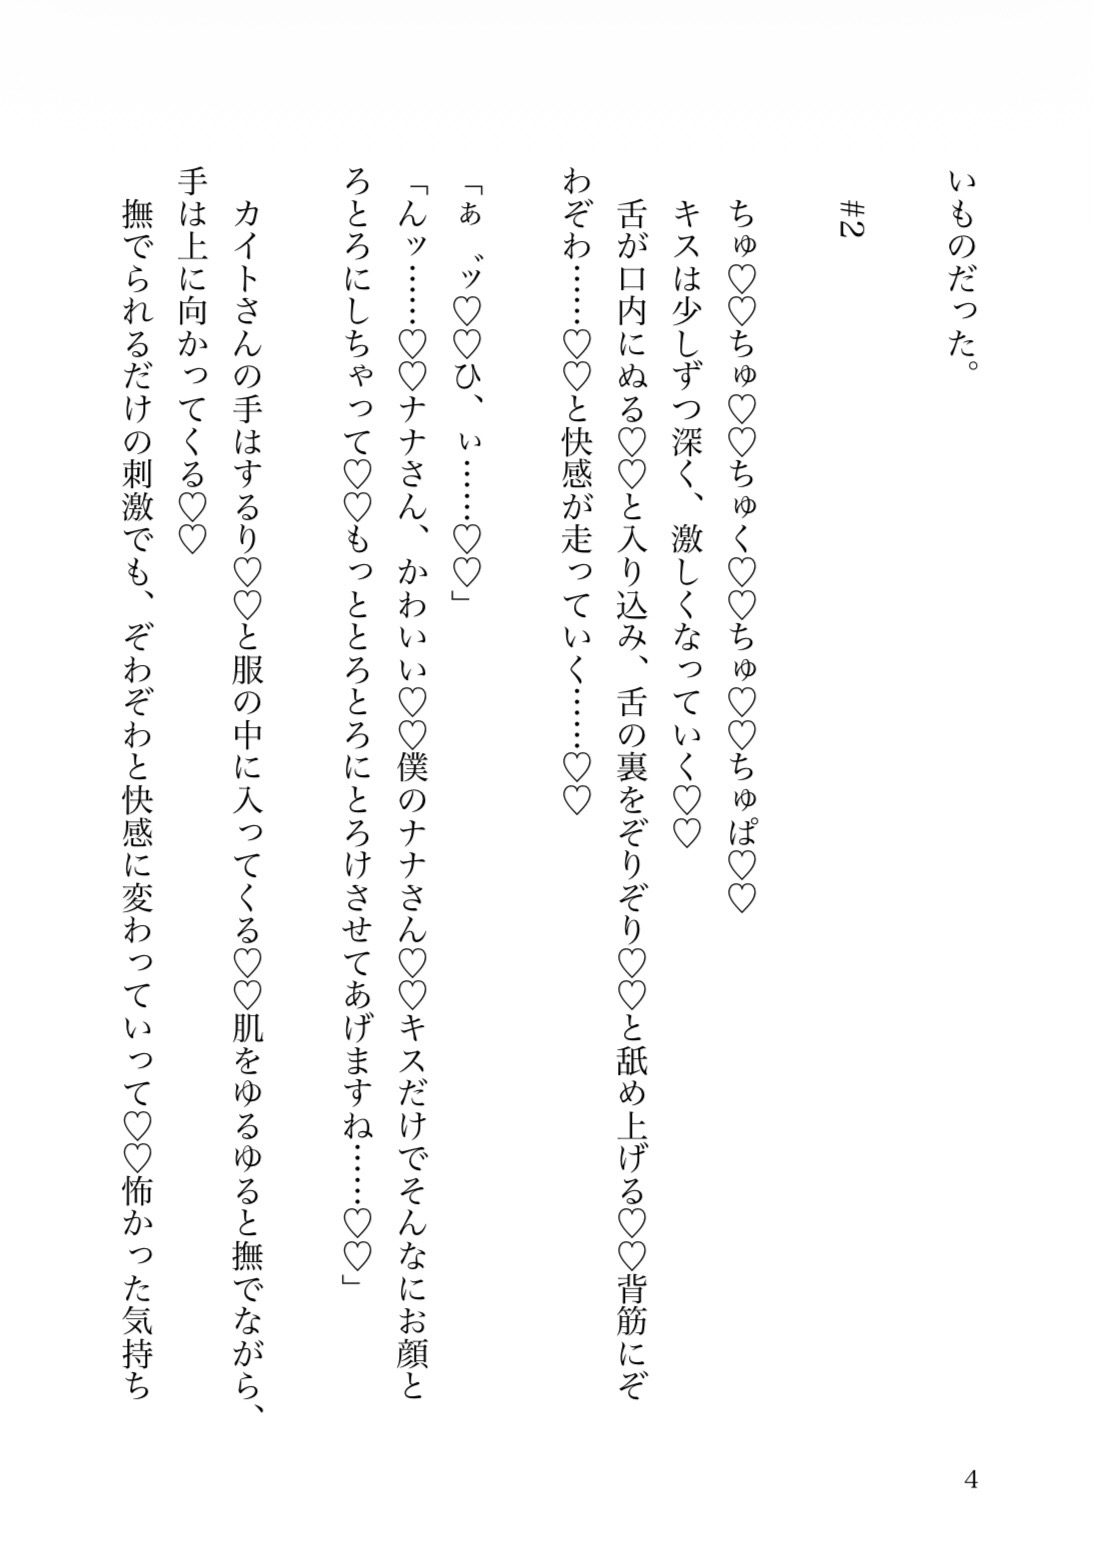 いものだった。
#2
ちゅ♡♡ちゅ♡♡ちゅく♡♡ちゅ♡♡ちゅぱ♡♡
キスは少しずつ深く、激しくなっていく♡♡
舌が口内にぬる♡♡と入り込み、舌の裏をぞりぞり♡♡と舐め上げる♡♡背筋にぞ
わぞわ……♡♡と快感が走っていく……♡♡
「ぁ゛ッ♡♡ひ、ぃ……♡♡」
「んッ……♡♡ナナさん、かわいい♡♡僕のナナさん♡♡キスだけでそんなにお顔と
ろとろにしちゃって♡♡もっととろとろにとろけさせてあげますね……♡♡」
カイトさんの手はするり♡♡と服の中に入ってくる♡♡肌をゆるゆると撫でながら、
手は上に向かってくる♡♡
撫でられるだけの刺激でも、ぞわぞわと快感に変わっていって♡♡怖かった気持ち
4